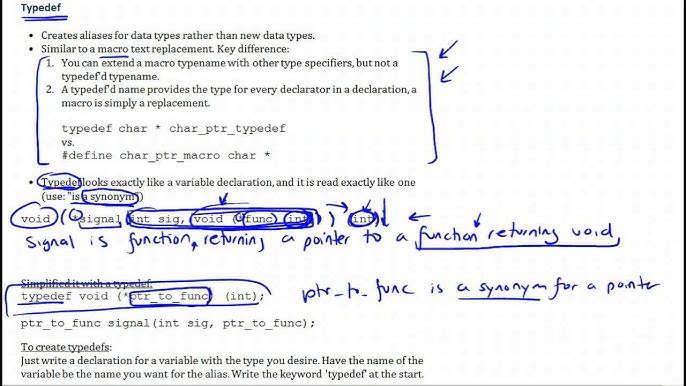 Typedef
• Creates aliases for data types rather than new data types.
• Similar to a macro text replacement. Key difference:
1. You can extend a macro typename with other type specifiers, but not a
typedef'd typename.
2. A typedef'd name provides the type for every declarator in a declaration, a
macro is simply a replacement.
typedef char * char_ptr_typedef
vs.
#define char_ptr_macro char *
• Typedef looks exactly like a variable declaration, and it is read exactly like one
(use: "is a synonym")
void (*signal(int sig, void (*func)(int)))(int);
signal is function, returning a pointer to a function returning void
Simplified it with a typedef:
typedef void (*ptr_to_func) (int);
ptr_to_func is a synonym for a pointer
ptr_to_func signal(int sig, ptr_to_func);
To create typedefs:
Just write a declaration for a variable with the type you desire. Have the name of the
variable be the name you want for the alias. Write the keyword 'typedef' at the start.